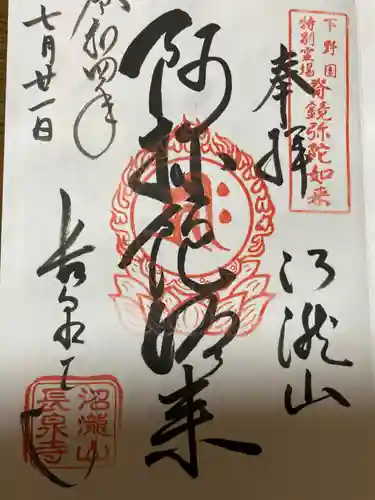 下野国
特別霊場
脊鏡弥陀如来
奉拝
江瀧山
阿弥陀如来
令和四年
七月廿一日
長泉寺
沼瀧山
長泉寺